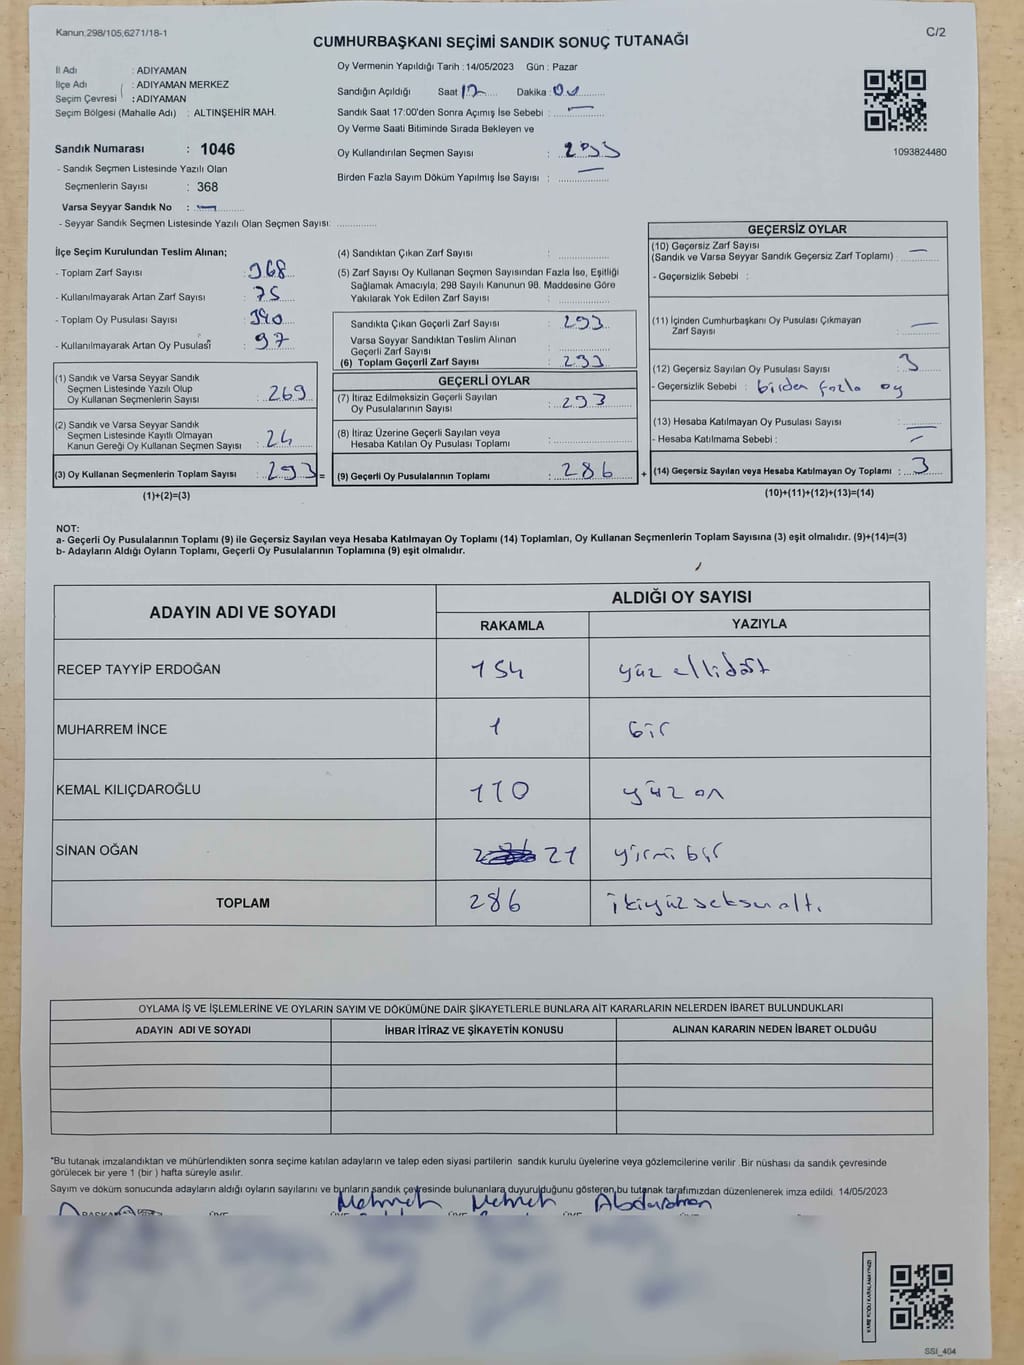 Kanun;298/105;6271/18-1
C/2
CUMHURBAŞKANI SEÇİMİ SANDIK SONUÇ TUTANAĞI
İl Adı : ADIYAMAN
İlçe Adı : ADIYAMAN MERKEZ
Seçim Çevresi : ADIYAMAN
Seçim Bölgesi (Mahalle Adı) : ALTINŞEHİR MAH.
Sandık Numarası : 1046
- Sandık Seçmen Listesinde Yazılı Olan
Seçmenlerin Sayısı : 368
Varsa Seyyar Sandık No : —
- Seyyar Sandık Seçmen Listesinde Yazılı Olan Seçmen Sayısı: ..............
Oy Vermenin Yapıldığı Tarih :14/05/2023 Gün : Pazar
Sandığın Açıldığı Saat Dakika :
Sandık Saat 17:00'den Sonra Açımış İse Sebebi : —
Oy Verme Saati Bitiminde Sırada Bekleyen ve
Oy Kullandırılan Seçmen Sayısı :
Birden Fazla Sayım Döküm Yapılmış İse Sayısı : —
1093824480
İlçe Seçim Kurulundan Teslim Alınan;
- Toplam Zarf Sayısı : 368
- Kullanılmayarak Artan Zarf Sayısı : 75
- Toplam Oy Pusulası Sayısı : 390
- Kullanılmayarak Artan Oy Pusulası : 97
(1) Sandık ve Varsa Seyyar Sandık
Seçmen Listesinde Yazılı Olup
Oy Kullanan Seçmenlerin Sayısı : 269
(2) Sandık ve Varsa Seyyar Sandık
Seçmen Listesinde Kayıtlı Olmayan
Kanun Gereği Oy Kullanan Seçmen Sayısı : 24
(3) Oy Kullanan Seçmenlerin Toplam Sayısı : 293 =
(1)+(2)=(3)
(4) Sandıktan Çıkan Zarf Sayısı : ..............
(5) Zarf Sayısı Oy Kullanan Seçmen Sayısından Fazla İse, Eşitliği
Sağlamak Amacıyla; 298 Sayılı Kanunun 98. Maddesine Göre
Yakılarak Yok Edilen Zarf Sayısı : ..............
Sandıkta Çıkan Geçerli Zarf Sayısı : 293
Varsa Seyyar Sandıktan Teslim Alınan
Geçerli Zarf Sayısı :
(6) Toplam Geçerli Zarf Sayısı : 293
GEÇERLİ OYLAR
(7) İtiraz Edilmeksizin Geçerli Sayılan
Oy Pusulalarının Sayısı : 293
(8) İtiraz Üzerine Geçerli Sayılan veya
Hesaba Katılan Oy Pusulası Toplamı : ..............
(9) Geçerli Oy Pusulalarının Toplamı : 286 +
GEÇERSİZ OYLAR
(10) Geçersiz Zarf Sayısı
(Sandık ve Varsa Seyyar Sandık Geçersiz Zarf Toplamı) : —
- Geçersizlik Sebebi :
(11) İçinden Cumhurbaşkanı Oy Pusulası Çıkmayan
Zarf Sayısı : —
(12) Geçersiz Sayılan Oy Pusulası Sayısı : 3
- Geçersizlik Sebebi : birden fazla oy
(13) Hesaba Katılmayan Oy Pusulası Sayısı : —
- Hesaba Katılmama Sebebi : —
(14) Geçersiz Sayılan veya Hesaba Katılmayan Oy Toplamı : 3
(10)+(11)+(12)+(13)=(14)
NOT:
a- Geçerli Oy Pusulalarının Toplamı (9) ile Geçersiz Sayılan veya Hesaba Katılmayan Oy Toplamı (14) Toplamları, Oy Kullanan Seçmenlerin Toplam Sayısına (3) eşit olmalıdır. (9)+(14)=(3)
b- Adayların Aldığı Oyların Toplamı, Geçerli Oy Pusulalarının Toplamına (9) eşit olmalıdır.
ADAYIN ADI VE SOYADI
ALDIĞI OY SAYISI
RAKAMLA YAZIYLA
RECEP TAYYİP ERDOĞAN 154 yüz ellidört
MUHARREM İNCE 1 bir
KEMAL KILIÇDAROĞLU 110 yüz on
SİNAN OĞAN 21 yirmi bir
TOPLAM 286 ikiyüz seksen altı
OYLAMA İŞ VE İŞLEMLERİNE VE OYLARIN SAYIM VE DÖKÜMÜNE DAİR ŞİKAYETLERLE BUNLARA AİT KARARLARIN NELERDEN İBARET BULUNDUKLARI
ADAYIN ADI VE SOYADI İHBAR İTİRAZ VE ŞİKAYETİN KONUSU ALINAN KARARIN NEDEN İBARET OLDUĞU
*Bu tutanak imzalandıktan ve mühürlendikten sonra seçime katılan adayların ve talep eden siyasi partilerin sandık kurulu üyelerine veya gözlemcilerine verilir .Bir nüshası da sandık çevresinde
görülecek bir yere 1 (bir ) hafta süreyle asılır.
Sayım ve döküm sonucunda adayların aldığı oyların sayılarını ve bunların sandık çevresinde bulunanlara duyurulduğunu gösteren bu tutanak tarafımızdan düzenlenerek imza edildi. 14/05/2023
Mehmet Mehmet Abdurrahman
BAŞKAN ÜYE ÜYE ÜYE ÜYE
SSI_404